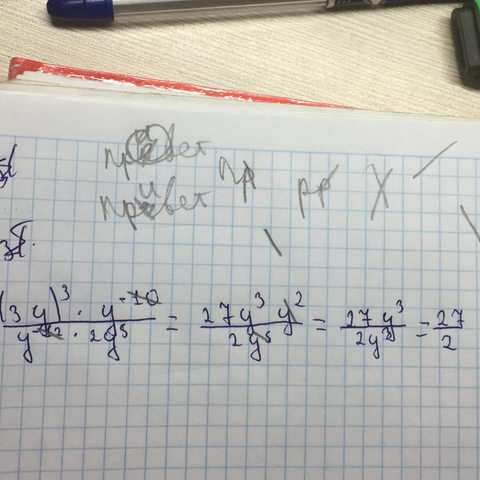 привет пр рр X
привет
(3y)^3 · y^-10 / y^-12 · 2y^5 = 27y^3 y^2 / 2y^5 = 27y^3 / 2y^3 = 27 / 2